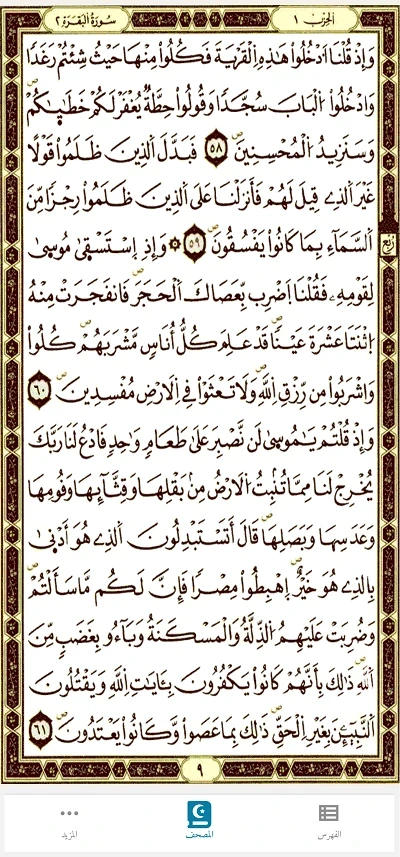 الحزب ١
سورة البقرة ٢
وَإِذْ قُلْنَا اَدْخُلُواْ هَٰذِهِ اِلْقَرْيَةَ فَكُلُواْ مِنْهَا حَيْثُ شِئْتُمْ رَغَدًا
وَادْخُلُواْ اُلْبَابَ سُجَّدًا وَقُولُواْ حِطَّةٌ يُغْفَرْ لَكُمْ خَطَٰيَٰكُمْ
وَسَنَزِيدُ اُلْمُحْسِنِينَ ٥٨ فَبَدَّلَ اَلذِينَ ظَلَمُواْ قَوْلًا
غَيْرَ اَلذِے قِيلَ لَهُمْ فَأَنزَلْنَا عَلَى اَلذِينَ ظَلَمُواْ رِجْزًا مِّنَ
اَلسَّمَآءِ بِمَا كَانُواْ يَفْسُقُونَ ٥٩ ۞ وَإِذِ اِسْتَسْقَىٰ مُوسَىٰ
لِقَوْمِهِۦ فَقُلْنَا اَضْرِب بِّعَصَاكَ اَلْحَجَرَ فَانفَجَرَتْ مِنْهُ
اُثْنَتَا عَشْرَةَ عَيْنًا قَدْ عَلِمَ كُلُّ أُنَاسٍ مَّشْرَبَهُمْ كُلُواْ
وَاشْرَبُواْ مِن رِّزْقِ اِللَّهِ وَلَا تَعْثَوْاْ فِے اِلَارْضِ مُفْسِدِينَ ٦٠
وَإِذْ قُلْتُمْ يَٰمُوسَىٰ لَن نَّصْبِرَ عَلَىٰ طَعَامٍ وَٰحِدٍ فَادْعُ لَنَا رَبَّكَ
يُخْرِجْ لَنَا مِمَّا تُنۢبِتُ اُلَارْضُ مِنۢ بَقْلِهَا وَقِثَّآئِهَا وَفُومِهَا
وَعَدَسِهَا وَبَصَلِهَا قَالَ أَتَسْتَبْدِلُونَ اَلذِے هُوَ أَدْنَىٰ
بِالذِے هُوَ خَيْرٌ اِهْبِطُواْ مِصْرًا فَإِنَّ لَكُم مَّا سَأَلْتُمْ
وَضُرِبَتْ عَلَيْهِمُ اُلذِّلَّةُ وَالْمَسْكَنَةُ وَبَآءُو بِغَضَبٍ مِّنَ
اَللَّهِ ذَٰلِكَ بِأَنَّهُمْ كَانُواْ يَكْفُرُونَ بِـَٔايَٰتِ اِللَّهِ وَيَقْتُلُونَ
اَلنَّبِيٓـِٕينَ بِغَيْرِ اِلْحَقِّ ذَٰلِكَ بِمَا عَصَواْ وَّكَانُواْ يَعْتَدُونَ ٦١
ربع
٩
الفهرس
المصحف
المزيد